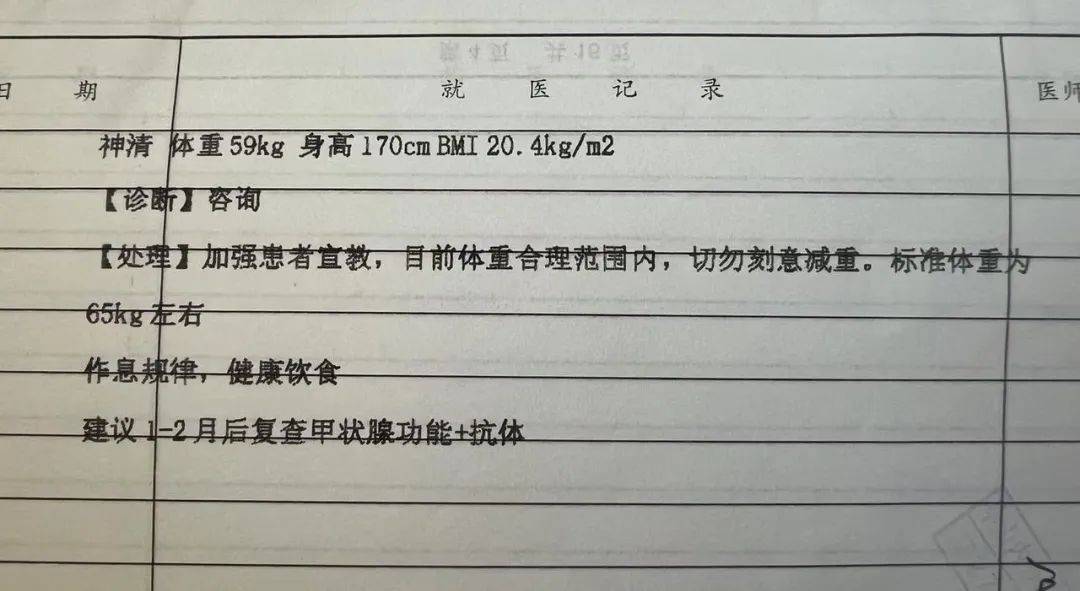 第4页 共16页
日 期 就 医 记 录 医师
神清 体重59kg 身高170cm BMI 20.4kg/m2
【诊断】咨询
【处理】加强患者宣教，目前体重合理范围内，切勿刻意减重。标准体重为
65kg左右
作息规律，健康饮食
建议1-2月后复查甲状腺功能+抗体